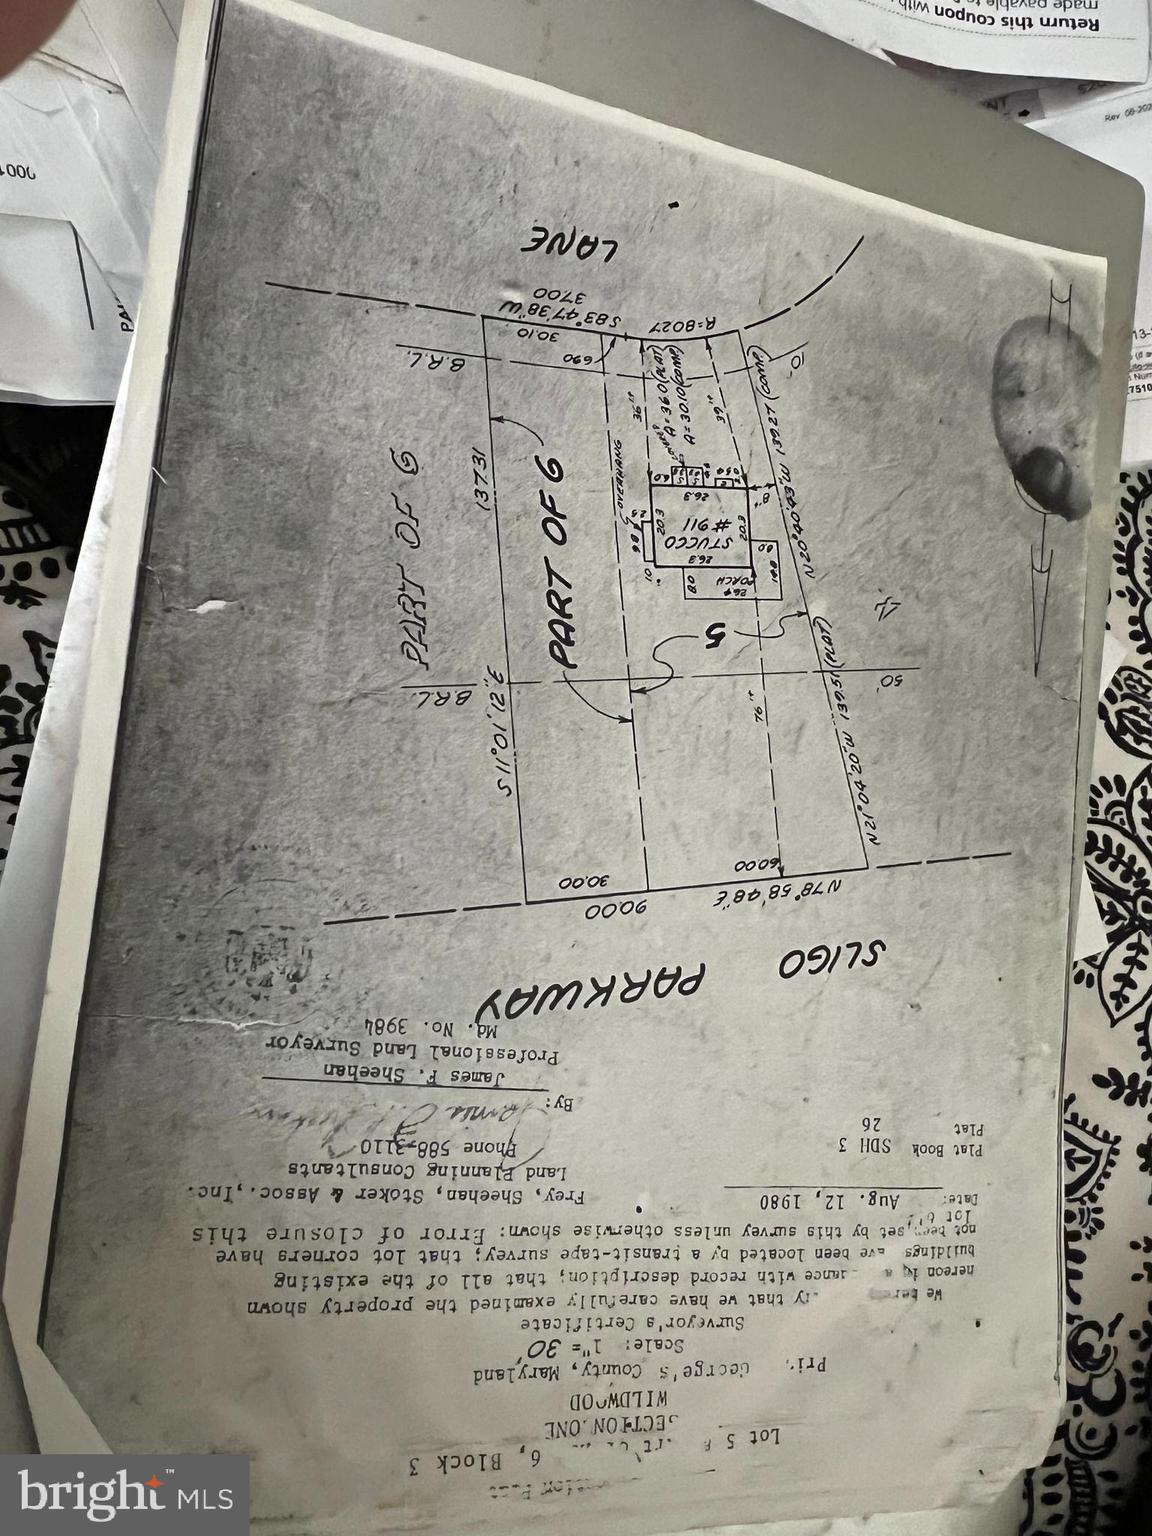 Lot 5 & Part of 6, Block 3
SECTION ONE
WILDWOOD
George's County, Maryland
Scale: 1"= 30'
Surveyor's Certificate
We that we have carefully examined the property shown
hereon in with record description; that all of the existing
buildings have been located by a transit-tape survey; that lot corners have
not been set by this survey unless otherwise shown: Error of closure this
lot
Date: Aug. 12, 1980
Frey, Sheehan, Stoker & Assoc., Inc.
Land Planning Consultants
Phone 588-3110
Plat Book SDH 3
Plat 26
By:
James F. Sheehan
Professional Land Surveyor
Md. No. 3984
SLIGO PARKWAY
N78°58'48"E
90.00
60.00
30.00
N21°04'20"W 139.51 (PLAT)
N20°40'43"W 139.27 (COMP)
76'±
50'
B.R.L.
S11°01'12"E
137.31
PART OF 6
PART OF 6
5
4
PORCH
26.4
8.0
8.0
26.3
STUCCO
#911
20.3
20.3
26.3
OVERHANG
36'±
39'±
A=36.0 (PLAT)
A=30.10 (COMP)
B.R.L.
10'
6.90
30.10
S83°47'38"W
37.00
R=80.27
LANE
Return this coupon with
made payable to
Rev. 08-202
7510
bright™ MLS